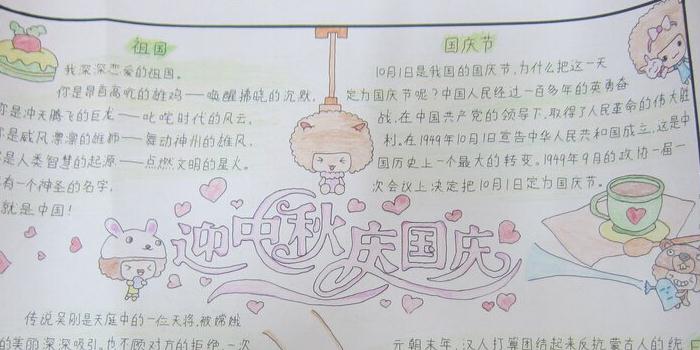 祖国
我深深恋爱的祖国。
你是昂首高吭的雄鸡——唤醒拂晓的沉默,
你是冲天腾飞的巨龙——叱咤时代的风云,
你是威风凛凛的雄狮——舞动神州的雄风,
是人类智慧的起源——点燃文明的星火。
有一个神圣的名字,
就是中国!
国庆节
10月1日是我国的国庆节,为什么把这一天
定为国庆节呢?中国人民经过一百多年的英勇奋
战,在中国共产党的领导下,取得了人民革命的伟大胜
利。在1949年10月1日宣告中华人民共和国成立,这是中
国历史上一个最大的转变。1949年9月的政协一届一
次会议上决定把10月1日定为国庆节。
迎中秋 庆国庆
传说吴刚是天庭中的一位天将,被嫦娥
的美丽深深吸引。也不顾对方的拒绝,一次
元朝末年,汉人打算团结起来反抗蒙古人的统